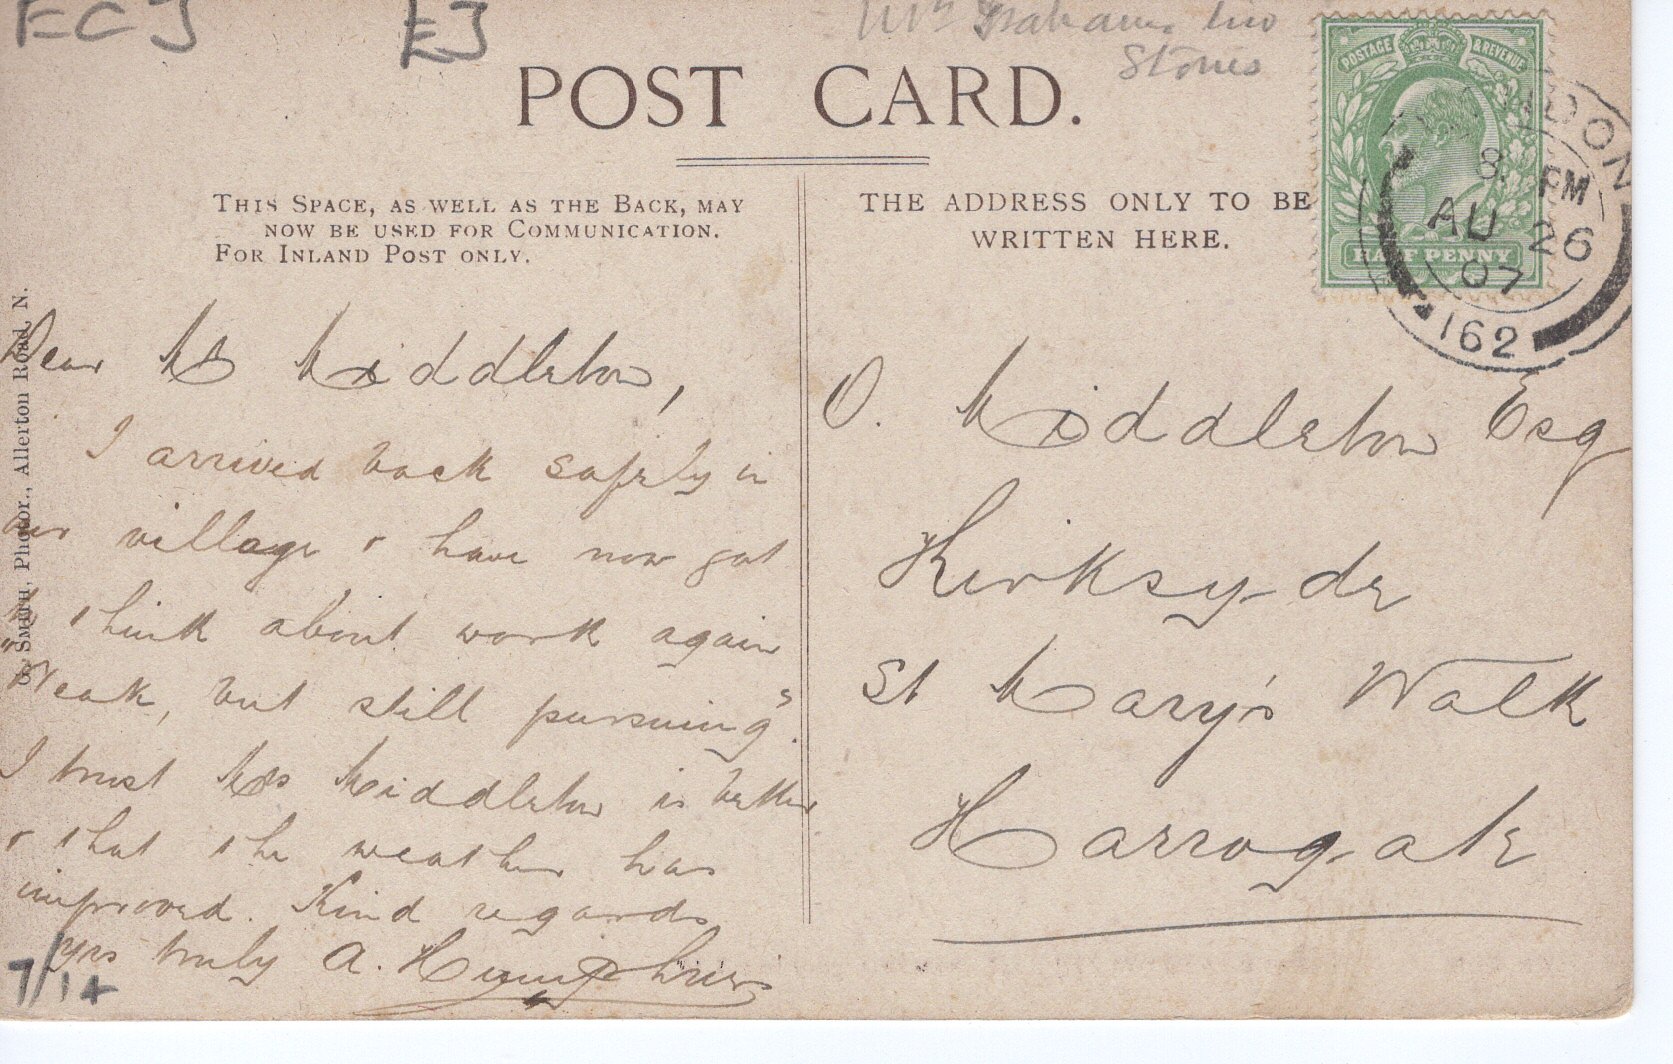 ECJ
EJ
Stones
POST CARD.
THIS SPACE, AS WELL AS THE BACK, MAY
NOW BE USED FOR COMMUNICATION.
FOR INLAND POST ONLY.
THE ADDRESS ONLY TO BE
WRITTEN HERE.
POSTAGE & REVENUE
HALF PENNY
LONDON
8. PM
AU 26
07
162
SMITH, PHOTOR., Allerton Road, N.
Dear Mr Middleton,
I arrived back safely in
our village & have now got
to think about work again
"Weak, but still pursuing".
I trust Mrs Middleton is better
& that the weather has
improved. Kind regards
Yrs truly A. Humphries
7/14
O. Middleton Esq
Kirksyde
St Mary's Walk
Harrogate